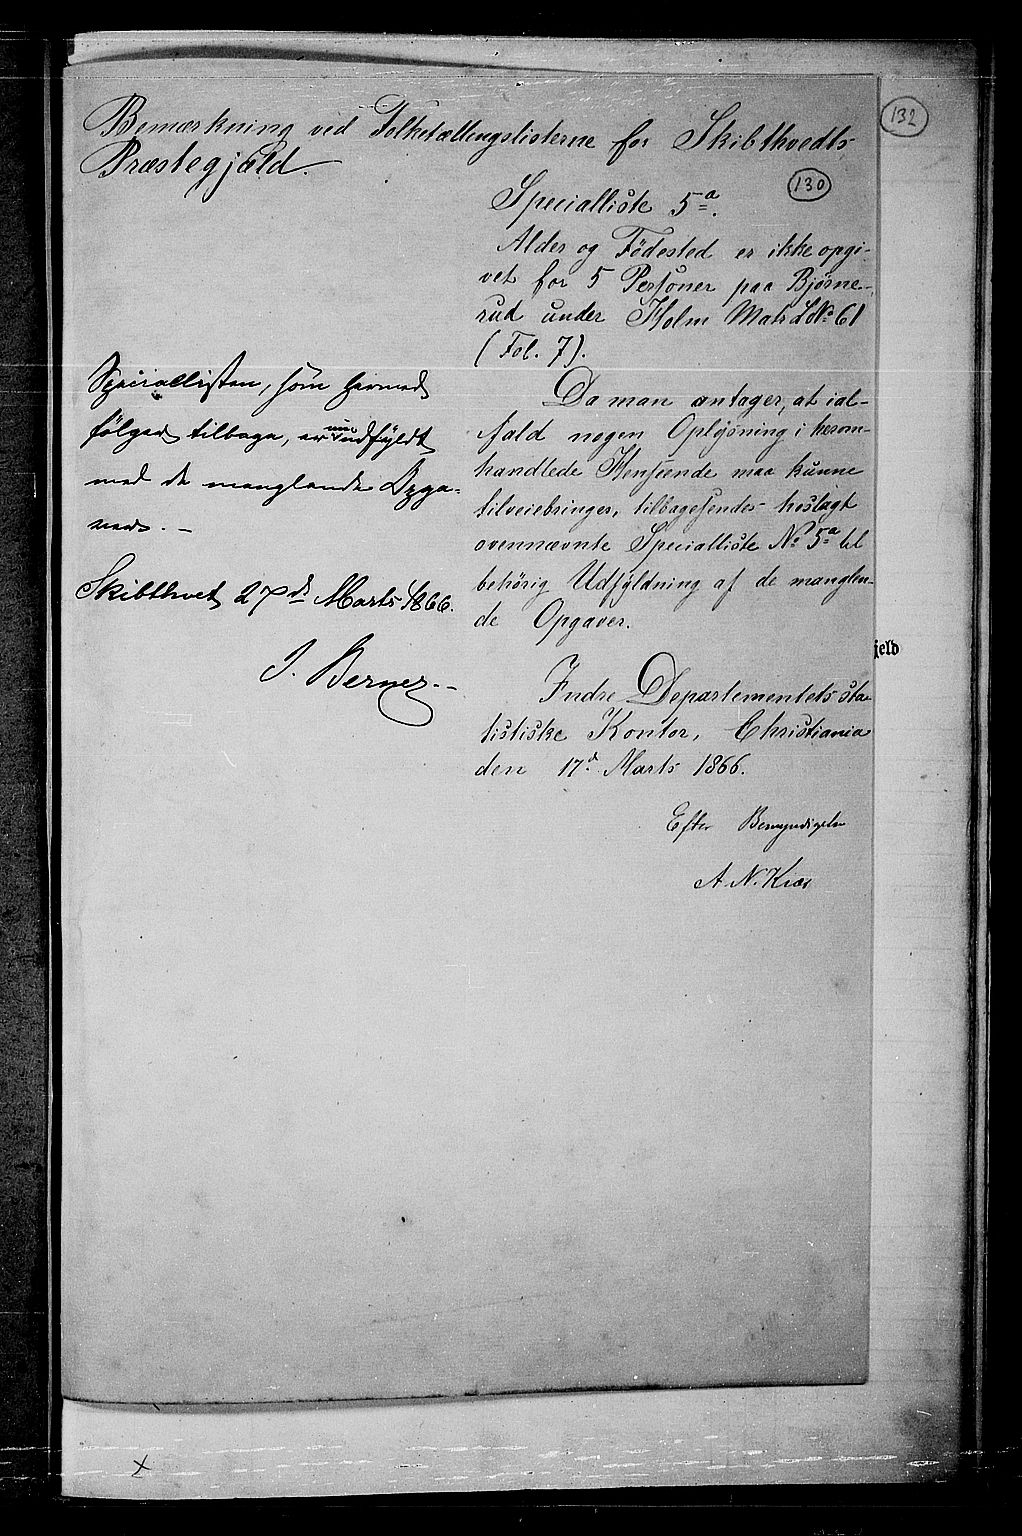 132
Bemærkning ved Folketællingslisterne for Skibthvedts
Præstegjæld.
130
Specialliste 5a.
Alder og Födested er ikke opgi-
vet for 5 Personer paa Bjørne-
rud under Holm Matr L№ 61
(Fol. 7).
Da man antager, at ial-
fald nogen Oplysning i herom-
handlede Henseende maa kunne
tilveiebringes, tilbagesendes heslagt
ovennævnte Specialliste № 5a til
behörig Udfyldning af de manglen-
de Opgaver.
Indre Departementets sta-
tistiske Kontor, Christiania
den 17d Marts 1866.
Efter Bemyndigelse
A. N. Kiær
Speciallisten, som hermed
følger tilbage, er nu udfyldt
med de manglende Opga-
ver. -
Skibthvet 27de Marts 1866.
J. Berner.
jeld
x